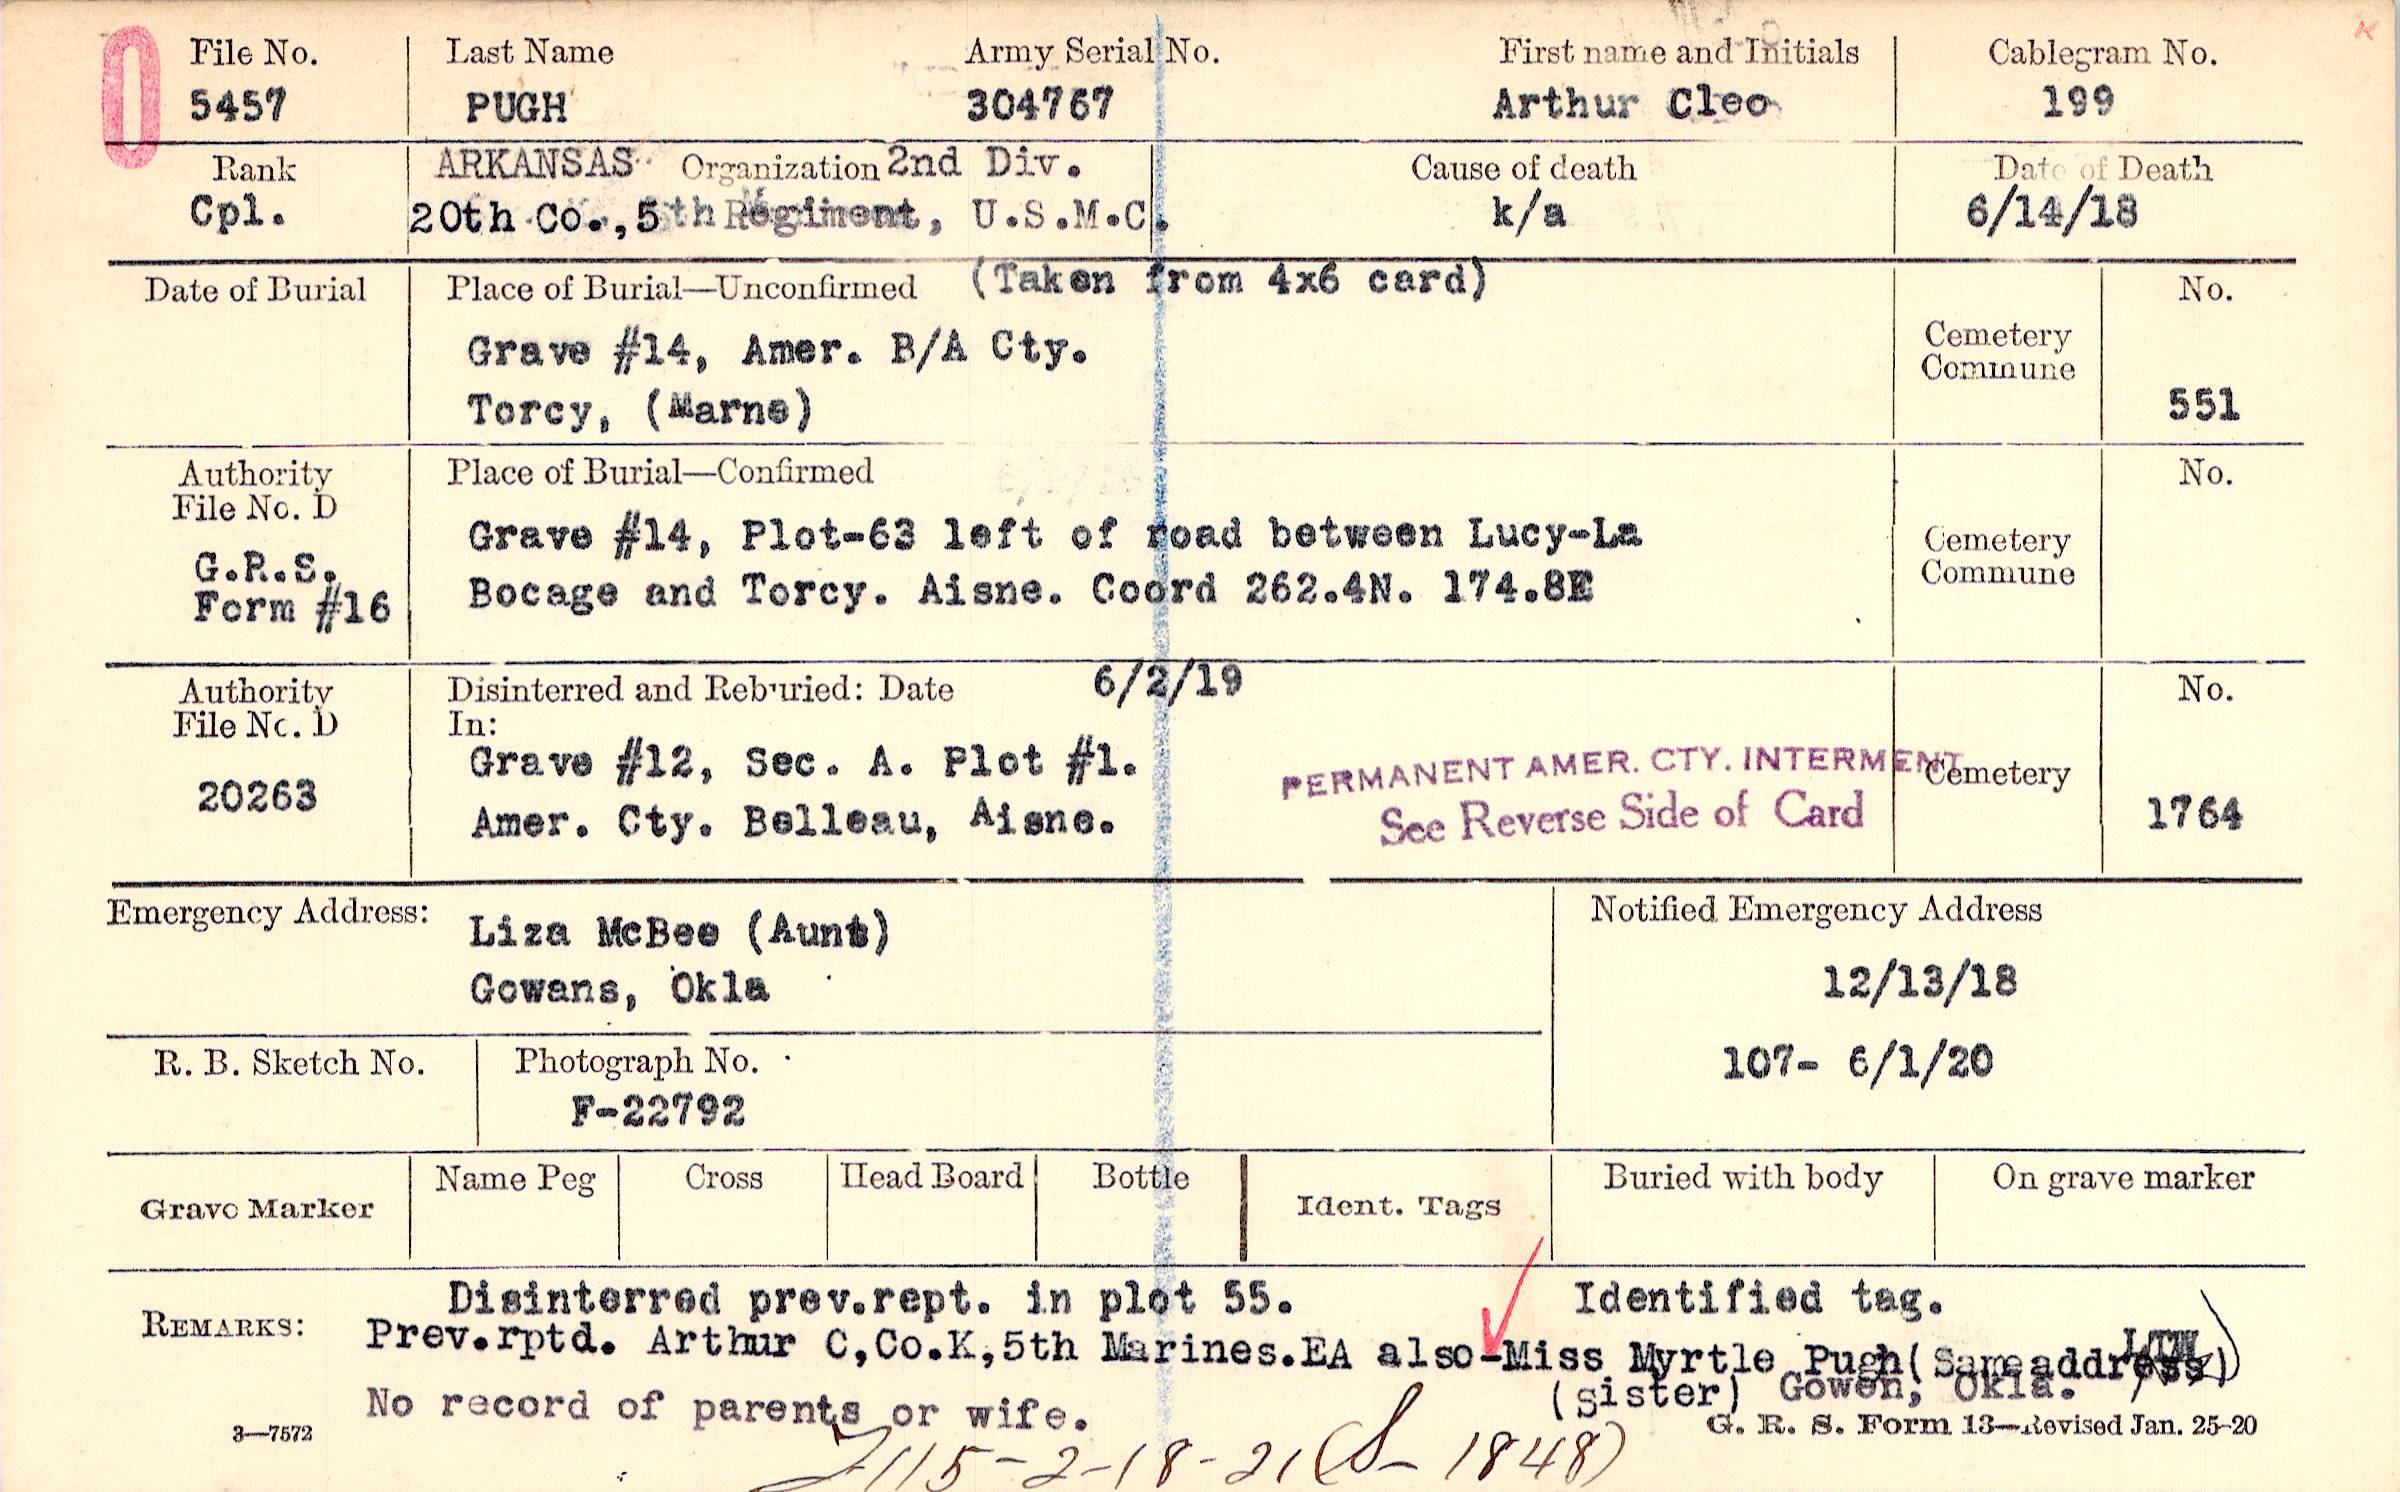 File No. Last Name Army Serial No. First name and Initials Cablegram No.
5457 PUGH 304767 Arthur Cleo 199
Rank ARKANSAS Organization 2nd Div. Cause of death Date of Death
Cpl. 20th Co.,5th Regiment, U.S.M.C. k/a 6/14/18
Date of Burial Place of Burial—Unconfirmed (Taken from 4x6 card) No.
Grave #14, Amer. B/A Cty. Cemetery
Commune
Torcy, (Marne) 551
Authority Place of Burial—Confirmed No.
File No. D
Grave #14, Plot-63 left of road between Lucy-La Cemetery
G.R.S. Commune
Form #16 Bocage and Torcy. Aisne. Coord 262.4N. 174.8E
Authority Disinterred and Reburied: Date 6/2/19 No.
File No. D In:
Grave #12, Sec. A. Plot #1. PERMANENT AMER. CTY. INTERMENT Cemetery
20263 Amer. Cty. Belleau, Aisne. See Reverse Side of Card 1764
Emergency Address: Liza McBee (Aunt) Notified Emergency Address
Gowans, Okla 12/13/18
R. B. Sketch No. Photograph No. 107- 6/1/20
F-22792
Grave Marker Name Peg Cross Head Board Bottle Ident. Tags Buried with body On grave marker
REMARKS: Disinterred prev.rept. in plot 55. Identified tag.
Prev.rptd. Arthur C,Co.K,5th Marines.EA also-Miss Myrtle Pugh(Same address)
(sister) Gowen, Okla.
No record of parents or wife.
3—7572 G. R. S. Form 13—Revised Jan. 25-20
115-2-18-21(S- 1848)